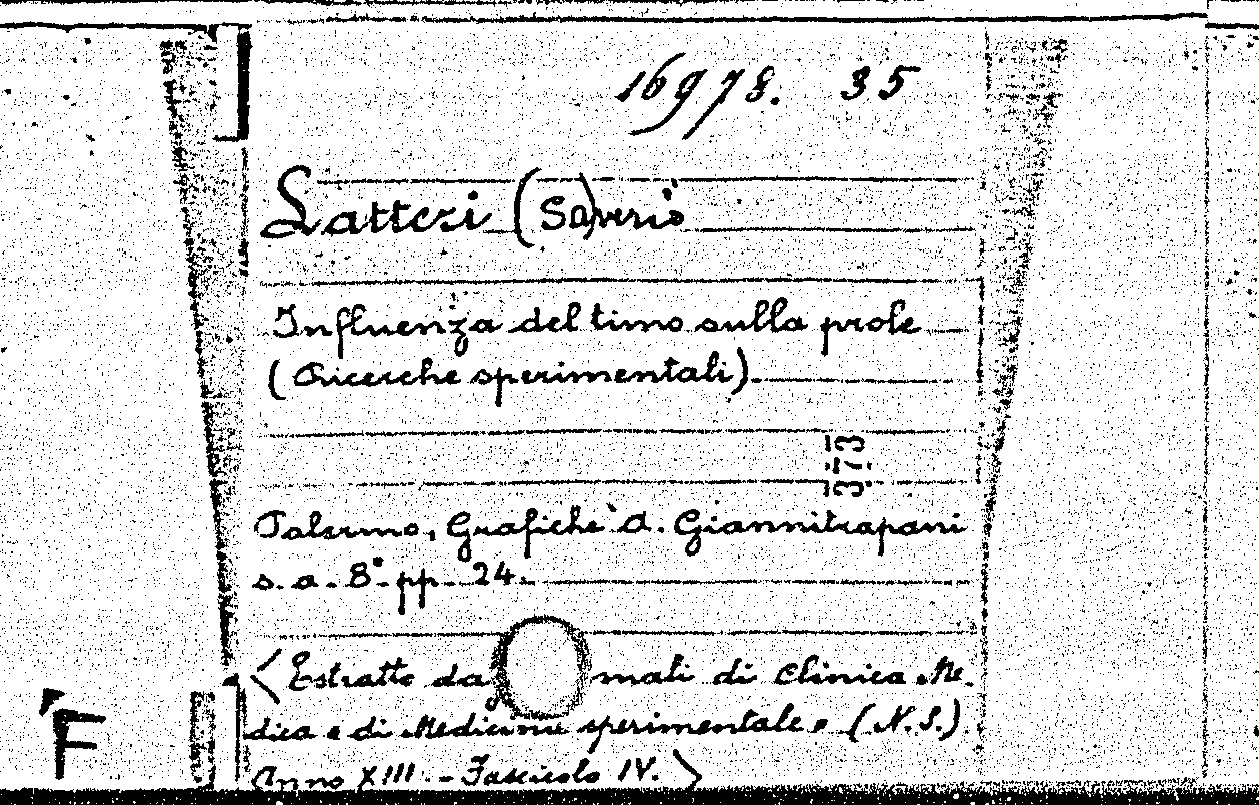 16978. 35
Latteri (Sa)verio
Influenza del timo sulla prole
(Ricerche sperimentali).
373
Palermo, Grafiche A. Giannitrapani
s. a. 8° pp. 24.
<Estratto da nali di Clinica Me.
dica e di Medicina sperimentale » (N. S.)
Anno XIII. - Fascicolo IV.>
F